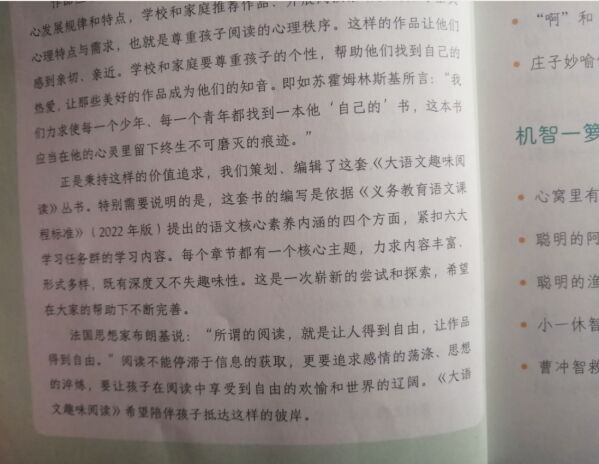 心发展规律和特点，学校和家庭推荐作品、
心理特点与需求，也就是尊重孩子阅读的心理秩序。这样的作品让他们
感到亲切、亲近。学校和家庭要尊重孩子的个性，帮助他们找到自己的
热爱，让那些美好的作品成为他们的知音。即如苏霍姆林斯基所言：“我
们力求使每一个少年、每一个青年都找到一本他‘自己的’书，这本书
应当在他的心灵里留下终生不可磨灭的痕迹。”
正是秉持这样的价值追求，我们策划、编辑了这套《大语文趣味阅
读》丛书。特别需要说明的是，这套书的编写是依据《义务教育语文课
程标准》（2022 年版）提出的语文核心素养内涵的四个方面，紧扣六大
学习任务群的学习内容。每个章节都有一个核心主题，力求内容丰富、
形式多样，既有深度又不失趣味性。这是一次崭新的尝试和探索，希望
在大家的帮助下不断完善。
法国思想家布朗基说：“所谓的阅读，就是让人得到自由，让作品
得到自由。”阅读不能停滞于信息的获取，更要追求感情的荡涤、思想
的淬炼，要让孩子在阅读中享受到自由的欢愉和世界的辽阔。《大语
文趣味阅读》希望陪伴孩子抵达这样的彼岸。
“啊”和
庄子妙喻
机智一箩
心窝里有
聪明的阿
聪明的渔
小一休智
曹冲智救